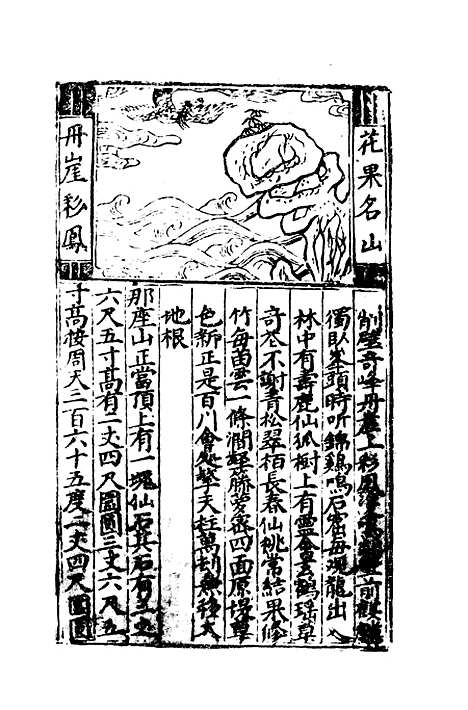 花果名山
丹崖彩鳳
削壁奇峰丹崖上彩鳳前麒麟
獨臥峯頭時听錦鷄鳴石窟每观龍出入
林中有壽鹿仙狐樹上有靈禽玄鶴瑶草
奇花不謝青松翠栢長春仙桃常結果修
竹每畱雲一條澗壑藤蘿密四面原堤草
色新正是百川會処擎天柱萬刼無移大
地根
那座山正當頂上有一塊仙石其石有三丈
六尺五寸高有二丈四尺圍圓三丈六尺五
寸高按周天三百六十五度二丈四尺圍圓